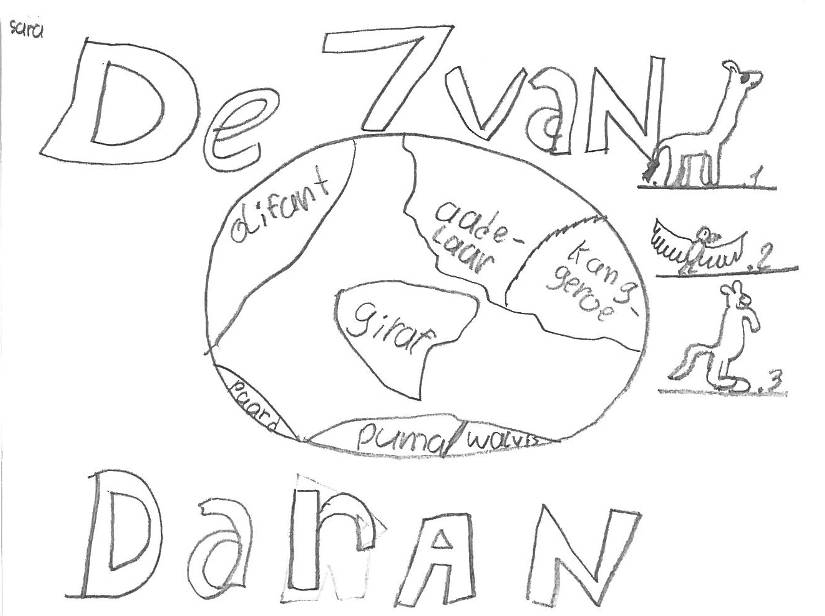 sara
De 7 van
olifant
aade-
laar
kang-
geroe
giraf
paard
puma
walvis
.1
.2
.3
Daran